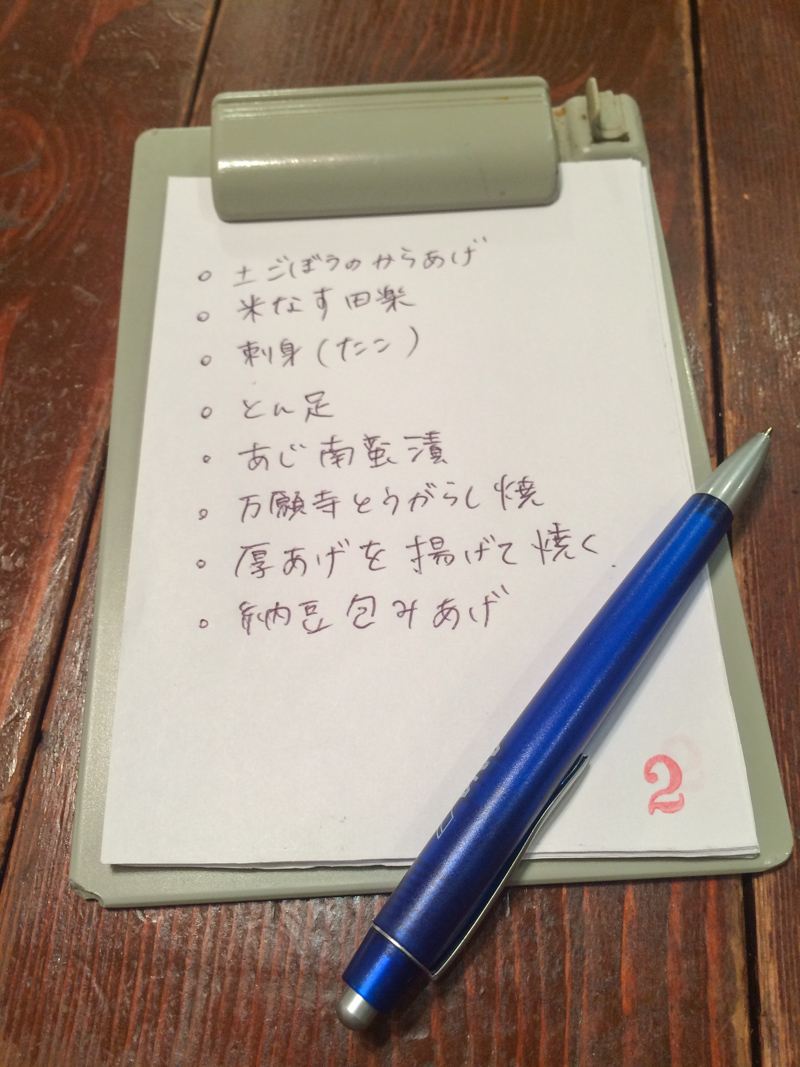 ○ 土ごぼうのからあげ
○ 米なす田楽
○ 刺身(たこ)
○ とん足
○ あじ南蛮漬
○ 万願寺とうがらし焼
○ 厚あげを揚げて焼く
○ 納豆包みあげ
2